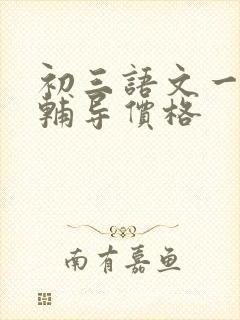 初三語文一
輔导價格
南有嘉鱼